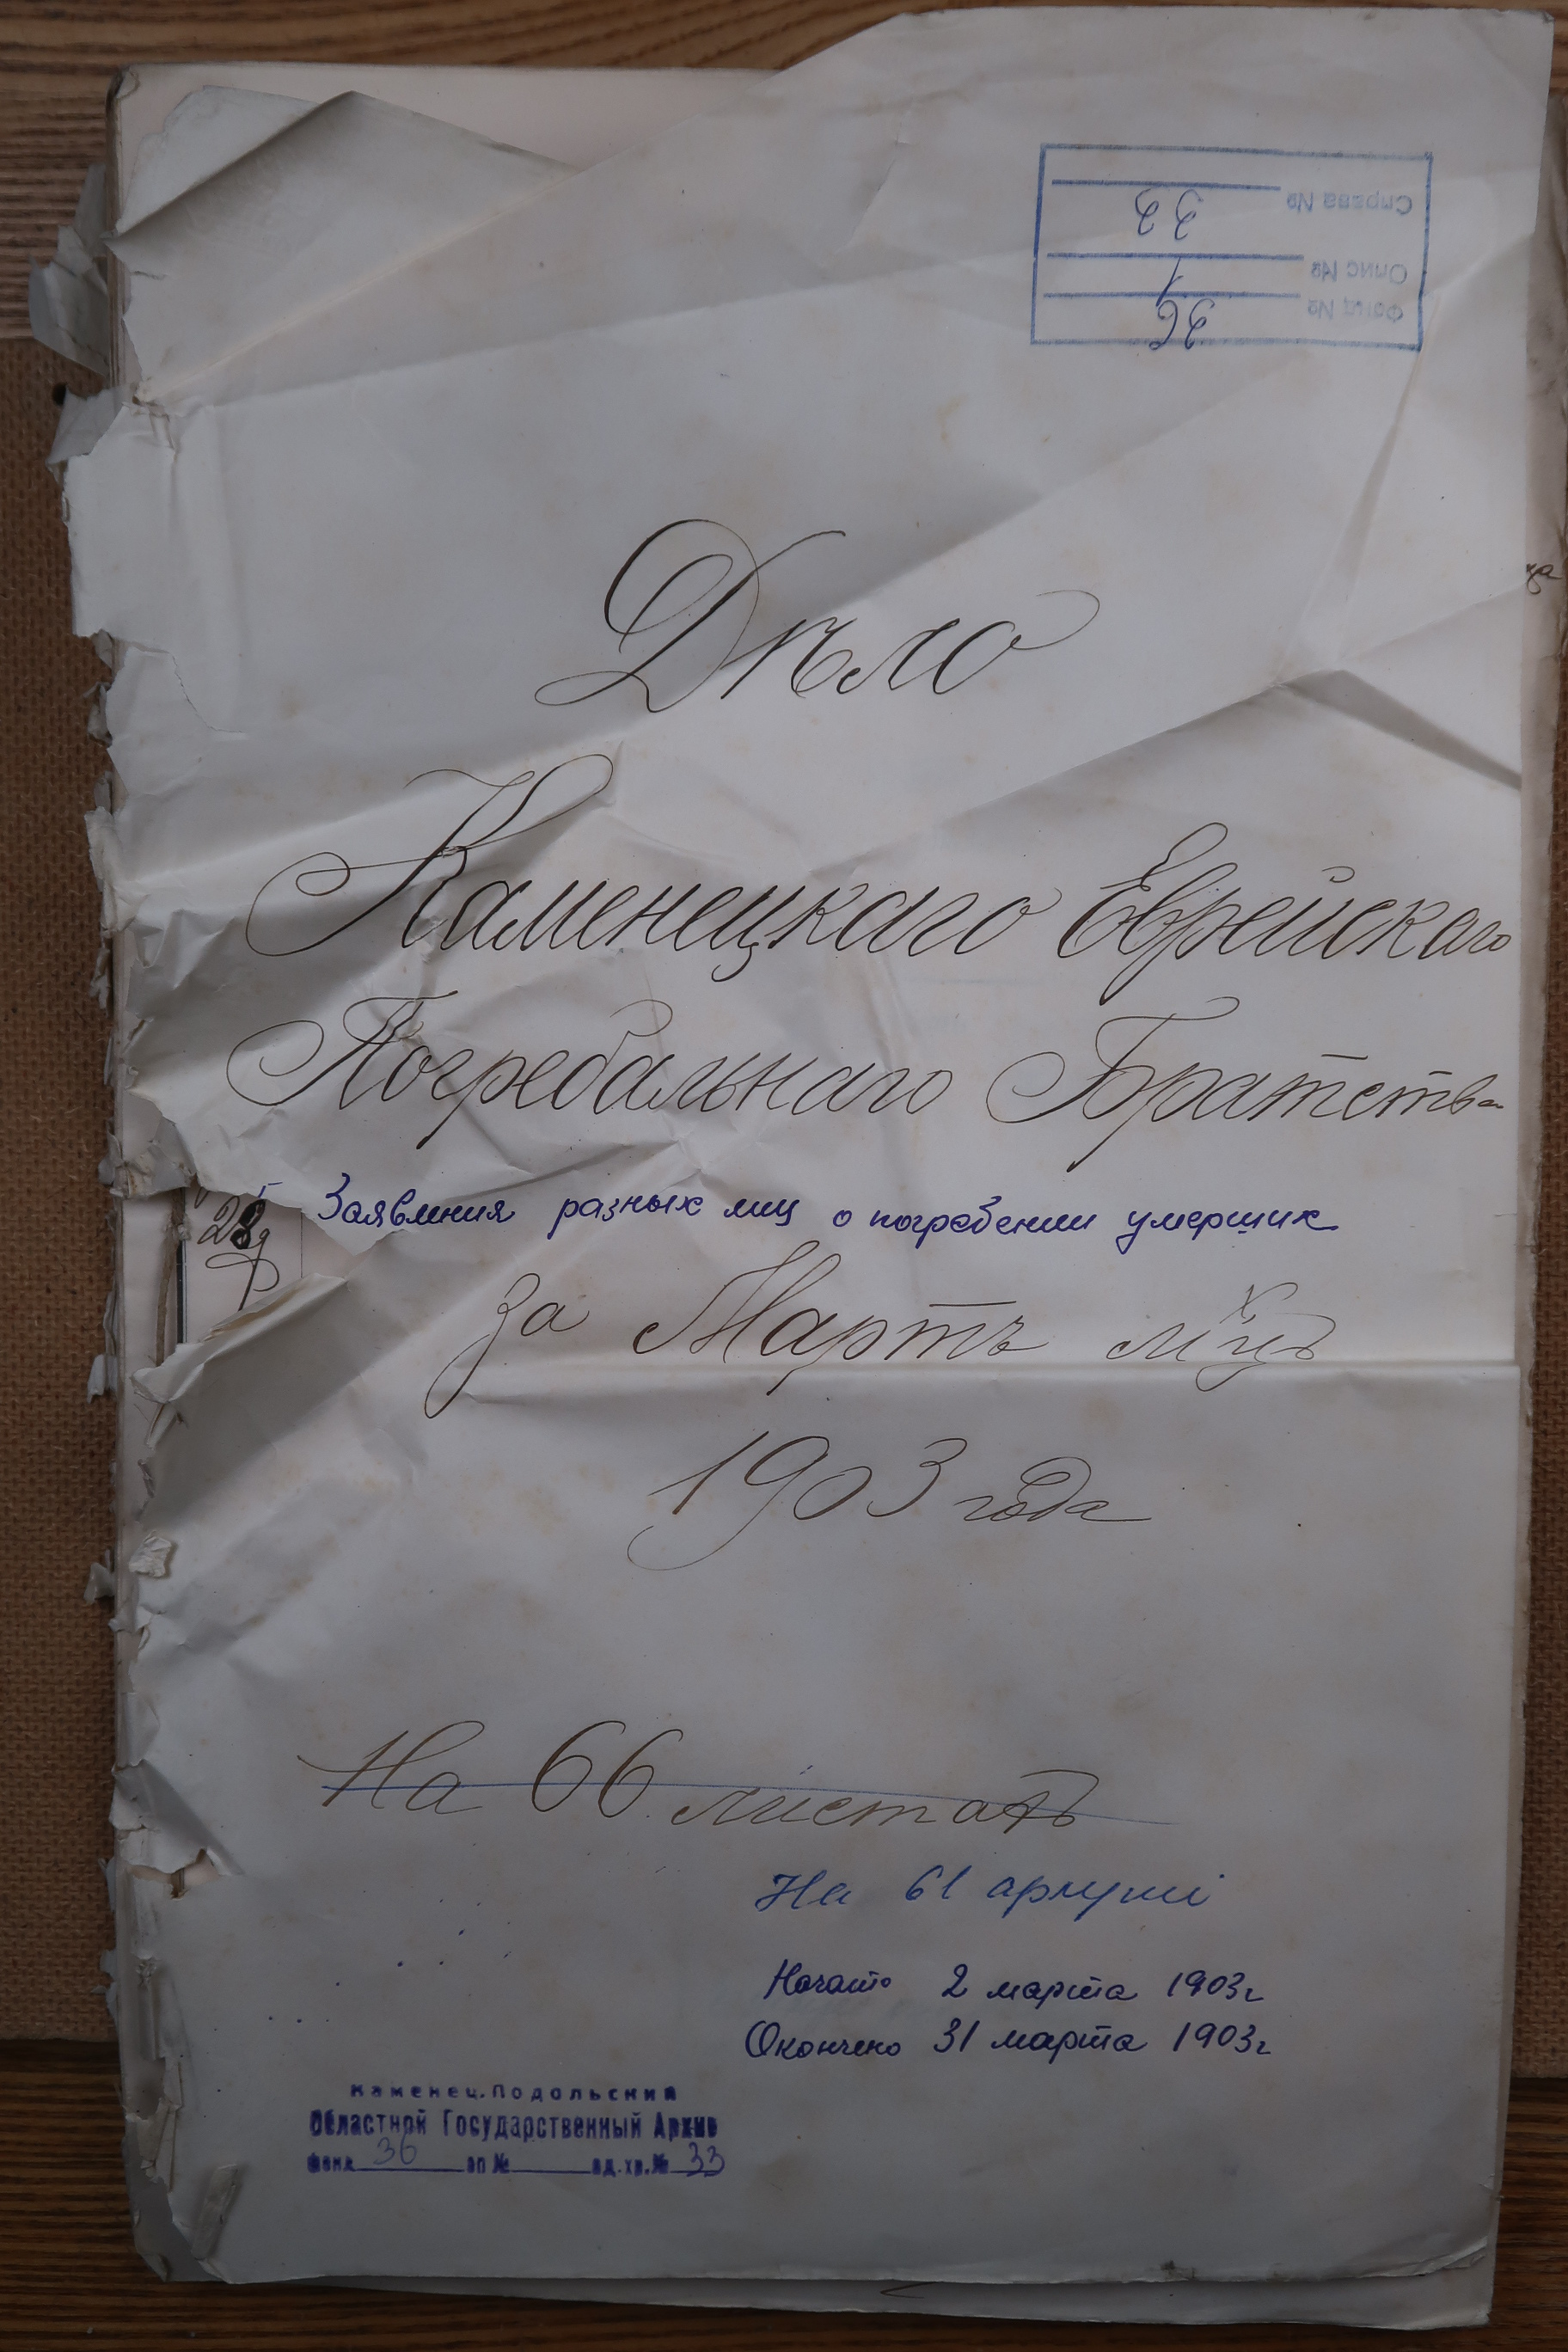 Справа № 33
Опис № 1
Фонд № 36
Дѣло
Каменецкаго Еврейскаго
Погребальнаго Братства
Заявления разных лиц о погребении умерших
за Мартъ м-цъ
1903 года
На 66 листахъ
На 61 аркуші
Начато 2 марта 1903г
Окончено 31 марта 1903г
Каменец-Подольский
Областной Государственный Архив
фонд 36 оп № ед.хр.№ 33